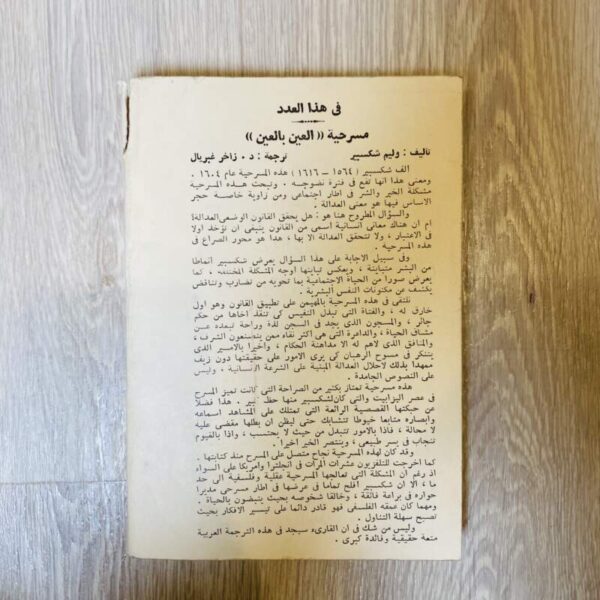 فى هذا العدد
مسرحية « العين بالعين »
تأليف : وليم شكسبير ترجمة : د . زاخر غبريال
ألف شكسبير ( ١٥٦٤ – ١٦١٦ ) هذه المسرحية عام ١٦٠٤ .
ومعنى هذا انها تقع فى فترة نضوجه . وتبحث هذه المسرحية
مشكلة الخير والشر فى اطار اجتماعى ومن زاوية خاصة حجر
الاساس فيها هو معنى العدالة .
والسؤال المطروح هنا هو : هل يحقق القانون الوضعى العدالة ؟
ام ان هناك معانى انسانية أسمى من القانون ينبغى ان تؤخذ اولا
فى الاعتبار ، ولا تتحقق العدالة الا بها ، هذا هو محور الصراع فى
هذه المسرحية .
وفى سبيل الاجابة على هذا السؤال يعرض شكسبير أنماطا
من البشر متباينة ، ويعكس تباينها أوجه المشكلة المختلفة ، كما
يعرض صورا من الحياة الاجتماعية بما تحويه من تضارب وتناقض
يكشف عن مكنونات النفس البشرية .
نلتقى فى هذه المسرحية بالمهيمن على تطبيق القانون وهو اول
خارق له ، والفتاة التى تبذل النفيس كى تنقذ أخاها من حكم
جائر ، والمسجون الذى يجد فى السجن لذة وراحة تبعده عن
مشاق الحياة ، والداعرة التى هى أكثر نقاء ممن يتصنعون الشرف ،
والمنافق الذى لاهم له الا مداهنة الحكام ، وأخيرا بالأمير الذى
يتنكر فى مسوح الرهبان كى يرى الامور على حقيقتها دون زيف
ممهدا بذلك لاحلال العدالة المبنية على الشرعة الانسانية ، وليس
على النصوص الجامدة .
هذه مسرحية تمتاز بكثير من الصراحة التى كانت تميز المسرح
فى عصر اليزابيث والتى كان لشكسبير منها حظ كبير . هذا فضلا
عن حبكتها القصصية الرائعة التى تمتلك على المشاهد أسماعه
وابصاره متابعا خيوطا تتشابك حتى ليظن ان بطلها مقضى عليه
لا محالة ، فاذا بالامور تتبدل من حيث لا يحتسب ، واذا بالغيوم
تنجاب فى يسر طبيعى ، وينتصر الخير أخيرا .
وقد كان لهذه المسرحية نجاح متصل على المسرح منذ كتابتها .
كما اخرجت للتلفزيون عشرات المرات فى انجلترا وأمريكا على السواء
اذ رغم ان المشكلة التى تعالجها المسرحية عقلية وفلسفية الى حد
ما ، الا ان شكسبير أفلح تماما فى عرضها فى اطار مسرحى مديرا
حواره فى براعة فائقة ، وخالقا شخوصه بحيث ينبضون بالحياة .
ومهما كان عمقه الفلسفى فهو قادر دائما على تيسير الافكار بحيث
تصبح سهلة التناول .
وليس من شك فى ان القارىء سيجد فى هذه الترجمة العربية
متعة حقيقية وفائدة كبرى .